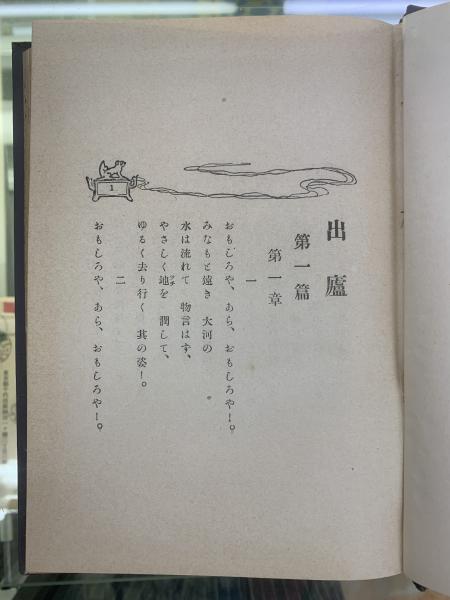 出廬
第一篇
第一章
一
おもしろや、あら、おもしろや!。
みなもと遠き 大河の
水は流れて 物言はず、
やさしく地を 潤して、
ゆるく去り行く 其の姿!。
二
おもしろや、あら、おもしろや!。
1